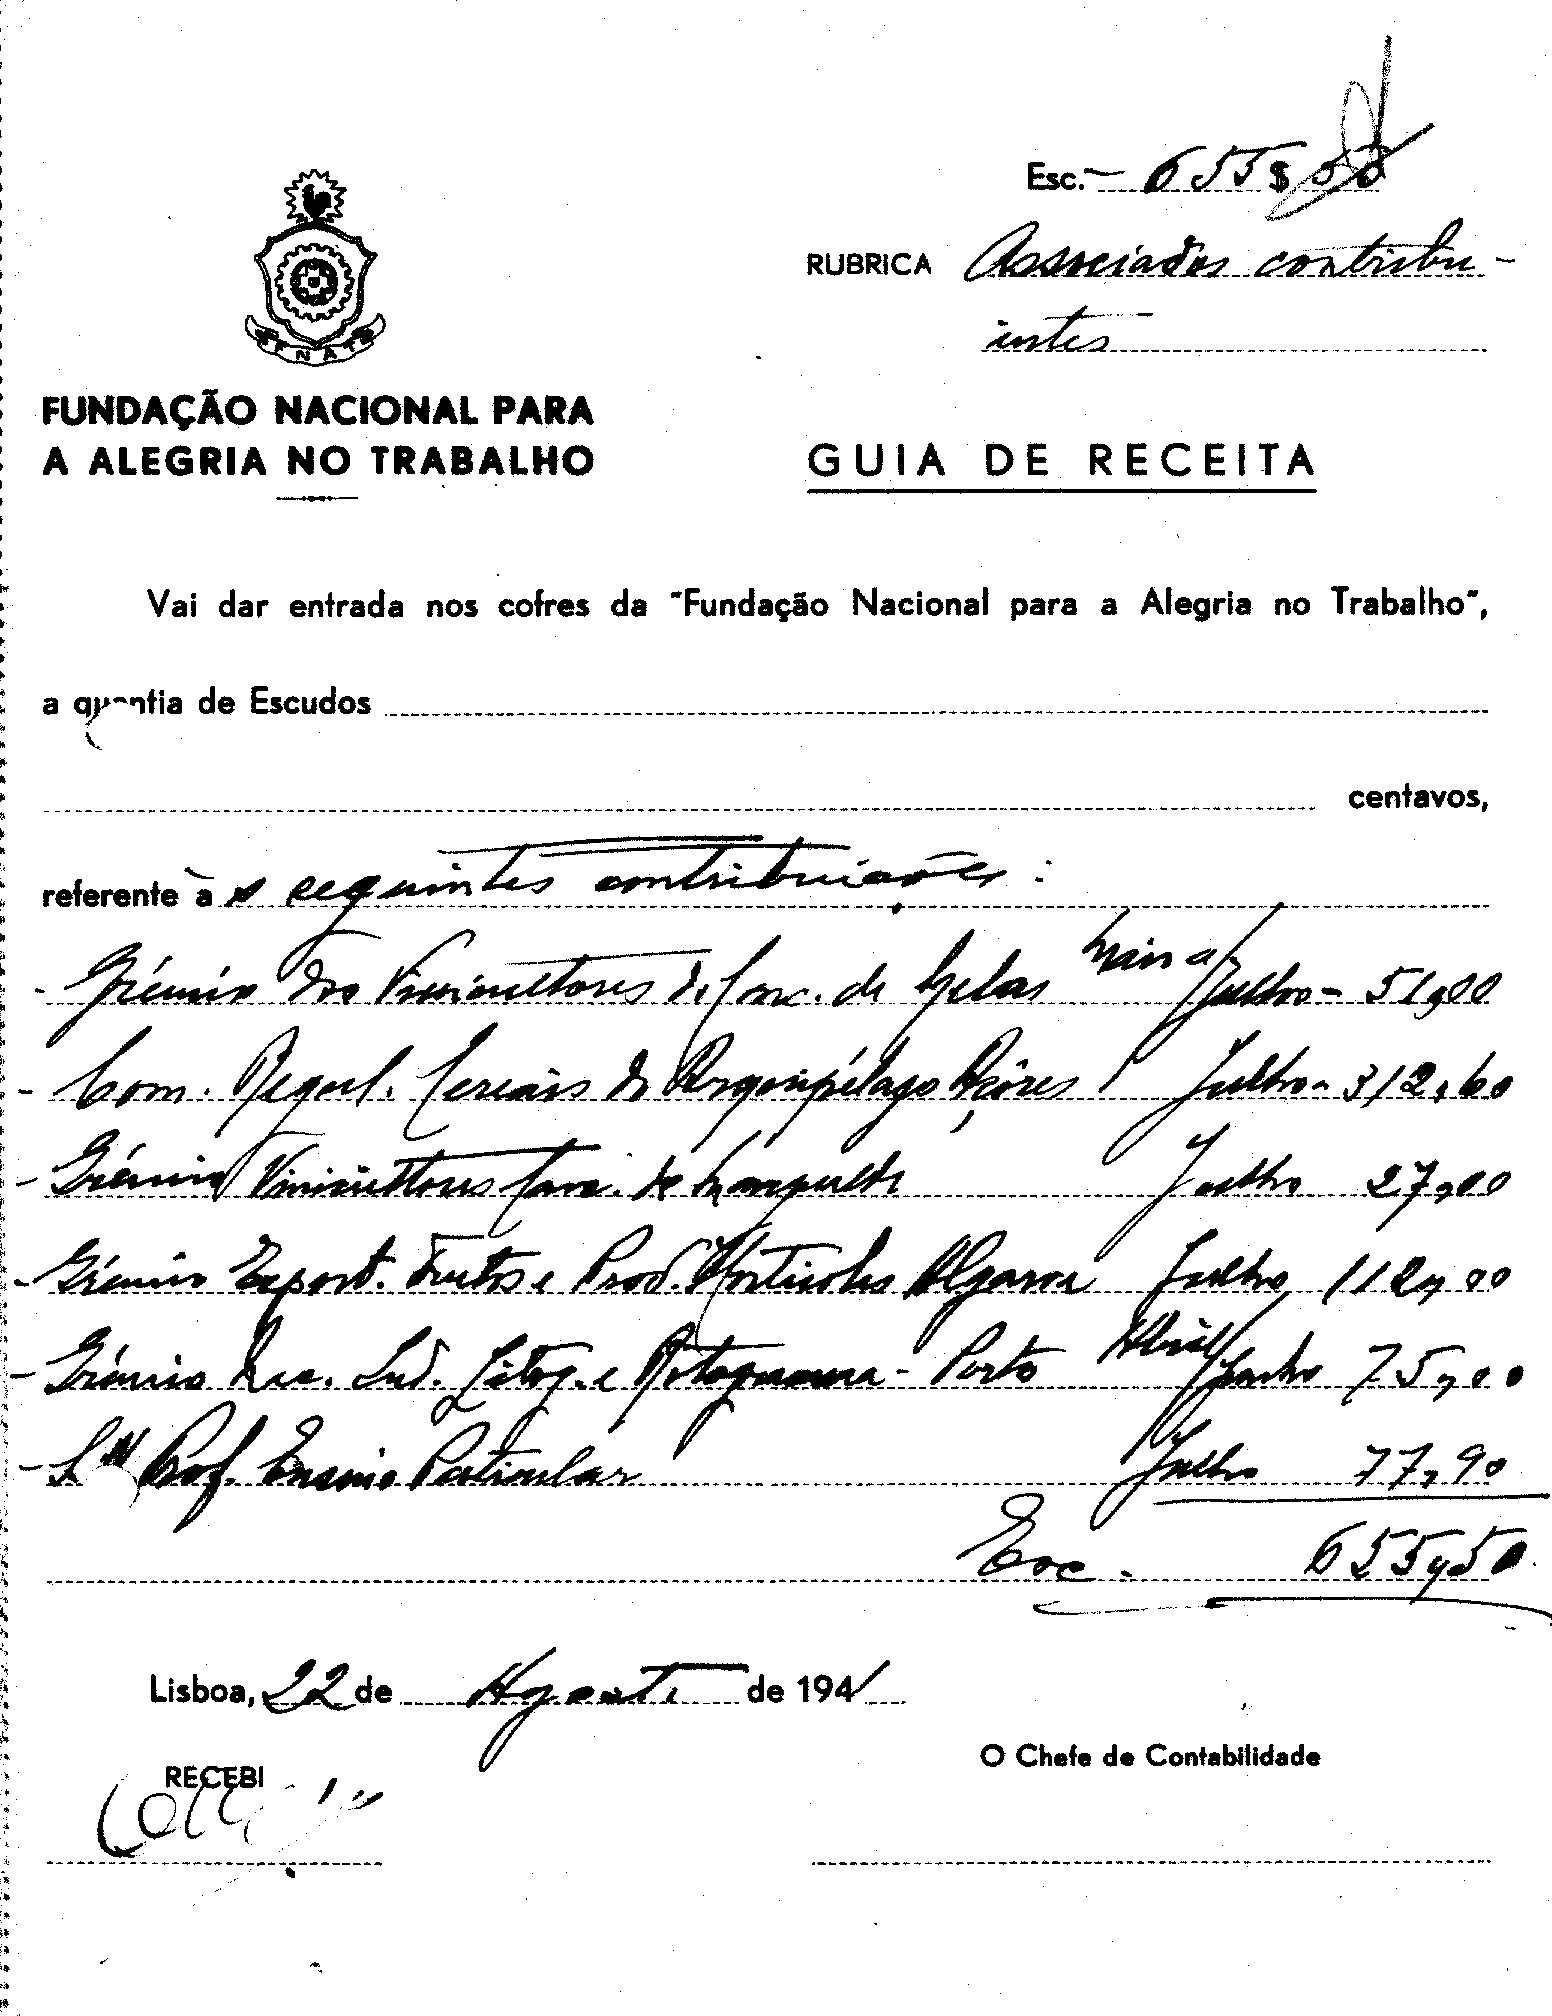 Esc.- 655$50
RUBRICA Associados contribu-
intes
FNAT
FUNDAÇÃO NACIONAL PARA
A ALEGRIA NO TRABALHO
GUIA DE RECEITA
Vai dar entrada nos cofres da "Fundação Nacional para a Alegria no Trabalho",
a quantia de Escudos
centavos,
referente às seguintes contribuições:
- Grémio dos Vinicultores do Conc. de Gelas Maio a/Julho - 51,00
- Com. Regul. Cereais do Arquipélago Açôres Julho - 312,60
- Grémio Vinicultores Conc. de Julho 27,00
- Grémio Export. Frutos e Prod. Horticolas Algarve Julho 112,00
- Grémio Nac. Ind. Litog. e Rotogravura - Porto Abril/Junho 75,00
- Prof. Ensino Particular Julho 77,90
Esc. 655,50
Lisboa, 22 de Agosto de 1941
O Chefe de Contabilidade
RECEBI